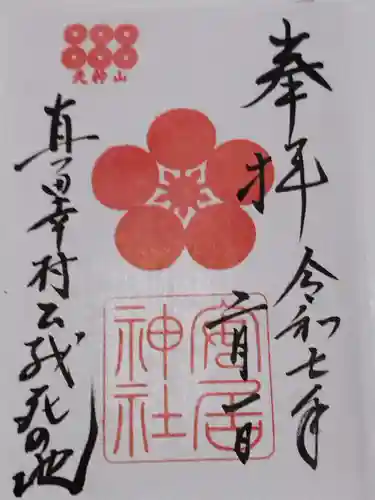 奉拝
令和七年
二月一日
安居
神社
真田幸村公戦死の地
天神山